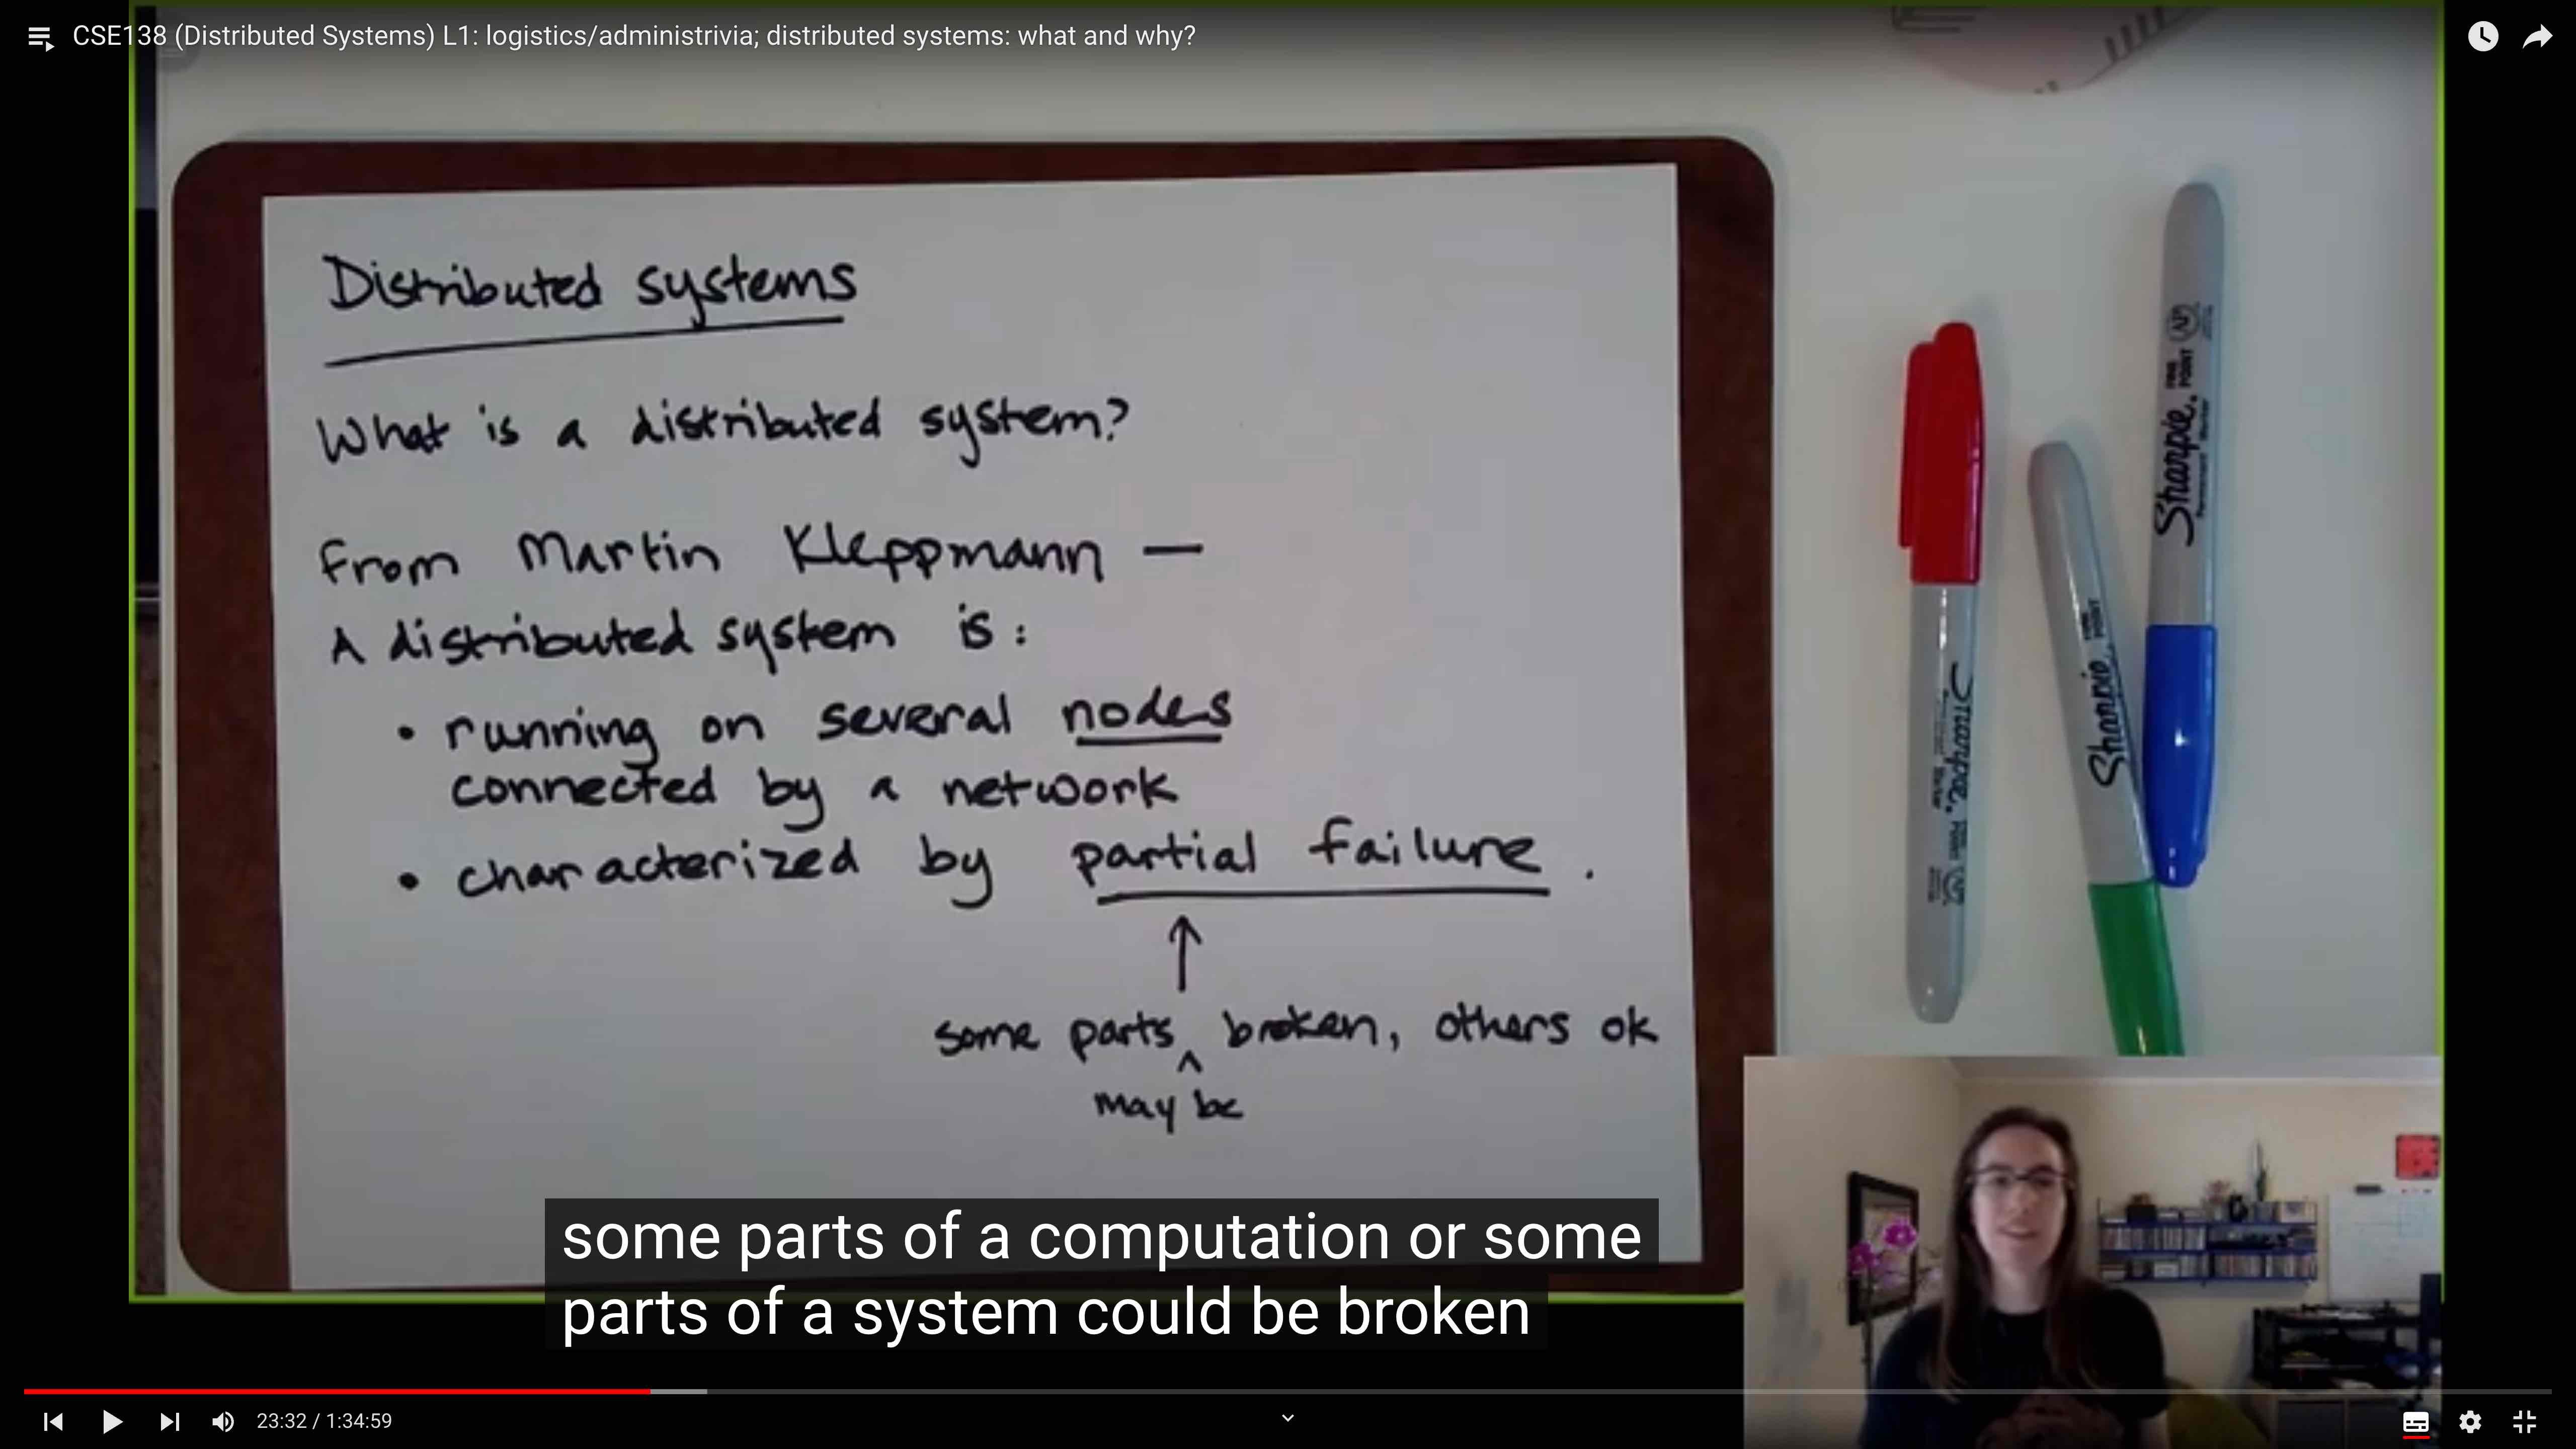 CSE138 (Distributed Systems) L1: logistics/administrivia; distributed systems: what and why?
Distributed systems
What is a distributed system?
From Martin Kleppmann —
A distributed system is:
• running on several nodes
connected by a network
• characterized by partial failure.
↑
some parts ^ broken, others ok
may be
Sharpie.
FINE POINT
AP
Sharpie.
FINE POINT
Sharpie.
AP
some parts of a computation or some
parts of a system could be broken
23:32 / 1:34:59